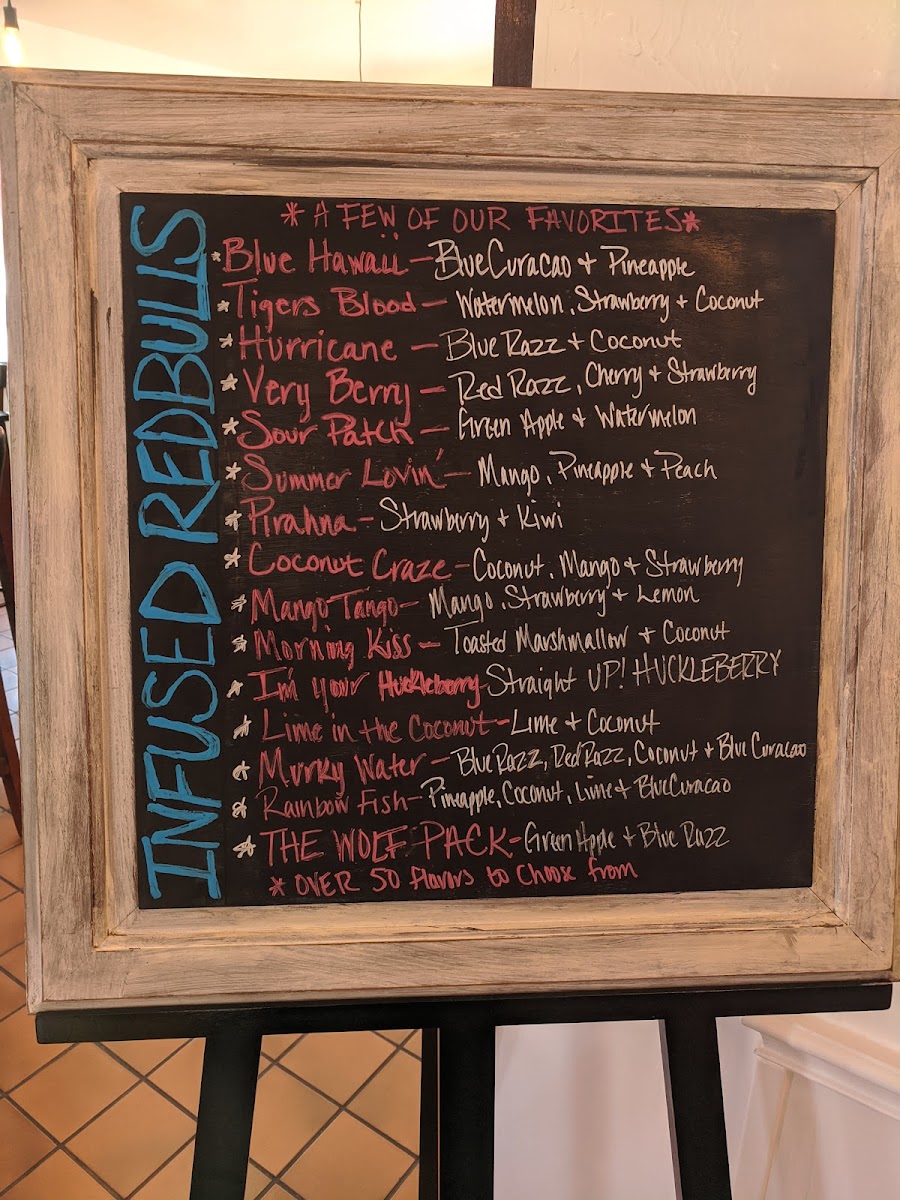 INFUSED REDBULLS
* A FEW OF OUR FAVORITES *
* Blue Hawaii - Blue Curacao + Pineapple
* Tigers Blood - Watermelon, Strawberry + Coconut
* Hurricane - Blue Razz + Coconut
* Very Berry - Red Razz, Cherry + Strawberry
* Sour Patch - Green Apple + Watermelon
* Summer Lovin' - Mango, Pineapple + Peach
* Pirahna - Strawberry + Kiwi
* Coconut Craze - Coconut, Mango + Strawberry
* Mango Tango - Mango, Strawberry + Lemon
* Morning Kiss - Toasted Marshmallow + Coconut
* I'm your Huckleberry - Straight UP! HUCKLEBERRY
* Lime in the Coconut - Lime + Coconut
* Murky Water - Blue Razz, Red Razz, Coconut + Blue Curacao
* Rainbow Fish - Pineapple, Coconut, Lime + Blue Curacao
* THE WOLF PACK - Green Apple + Blue Razz
* OVER 50 flavors to Choose from